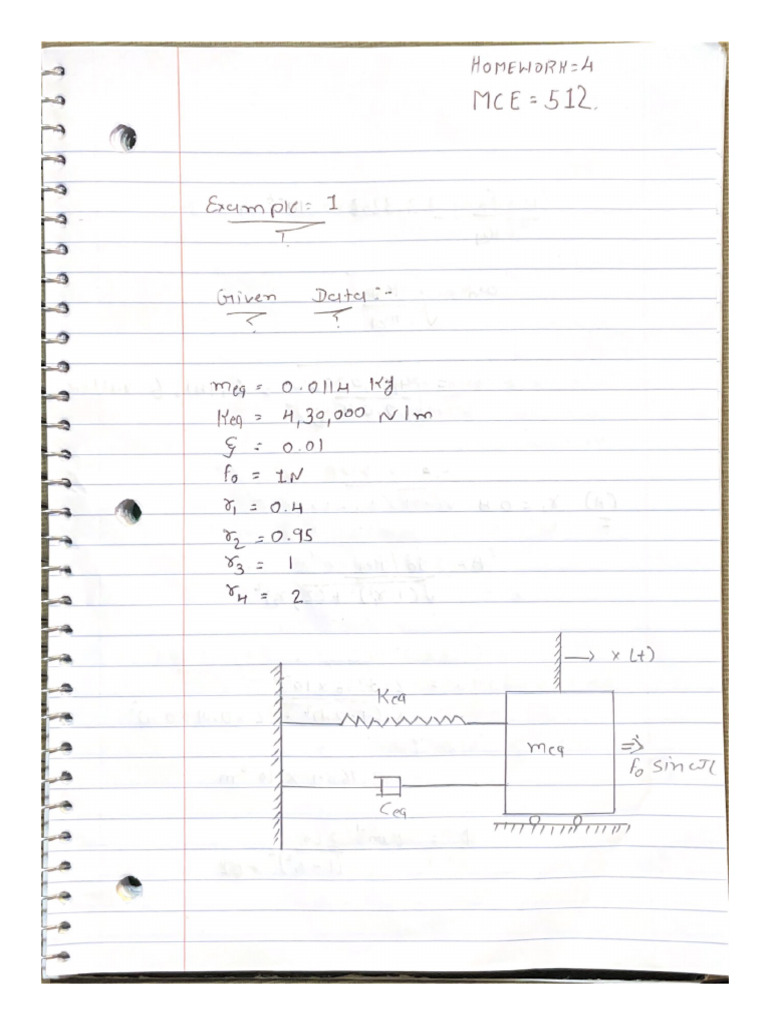 HOMEWORK=4
MCE=512.
Example: 1
Given Data:-
meq = 0.0114 Kg
Keq = 4,30,000 N/m
ξ = 0.01
fo = 1N
r1 = 0.4
r2 = 0.95
r3 = 1
r4 = 2
x(t)
Keq
meq
fo sin ωt
Ceq